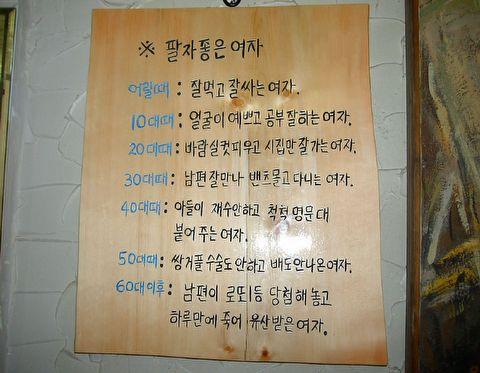 ※ 팔자좋은여자
어릴때 : 잘먹고잘싸는여자.
10대때 : 얼굴이 예쁘고 공부잘하는여자.
20대때 : 바람실컷피우고 시집만잘가는여자.
30대때 : 남편잘만나 밴츠몰고다니는여자.
40대때 : 아들이 재수안하고 척척 명문대
붙어주는여자.
50대때 : 쌍거풀수술도안하고 배도안나온여자.
60대이후 : 남편이 로또1등 당첨해놓고
하루만에죽어 유산받은여자.